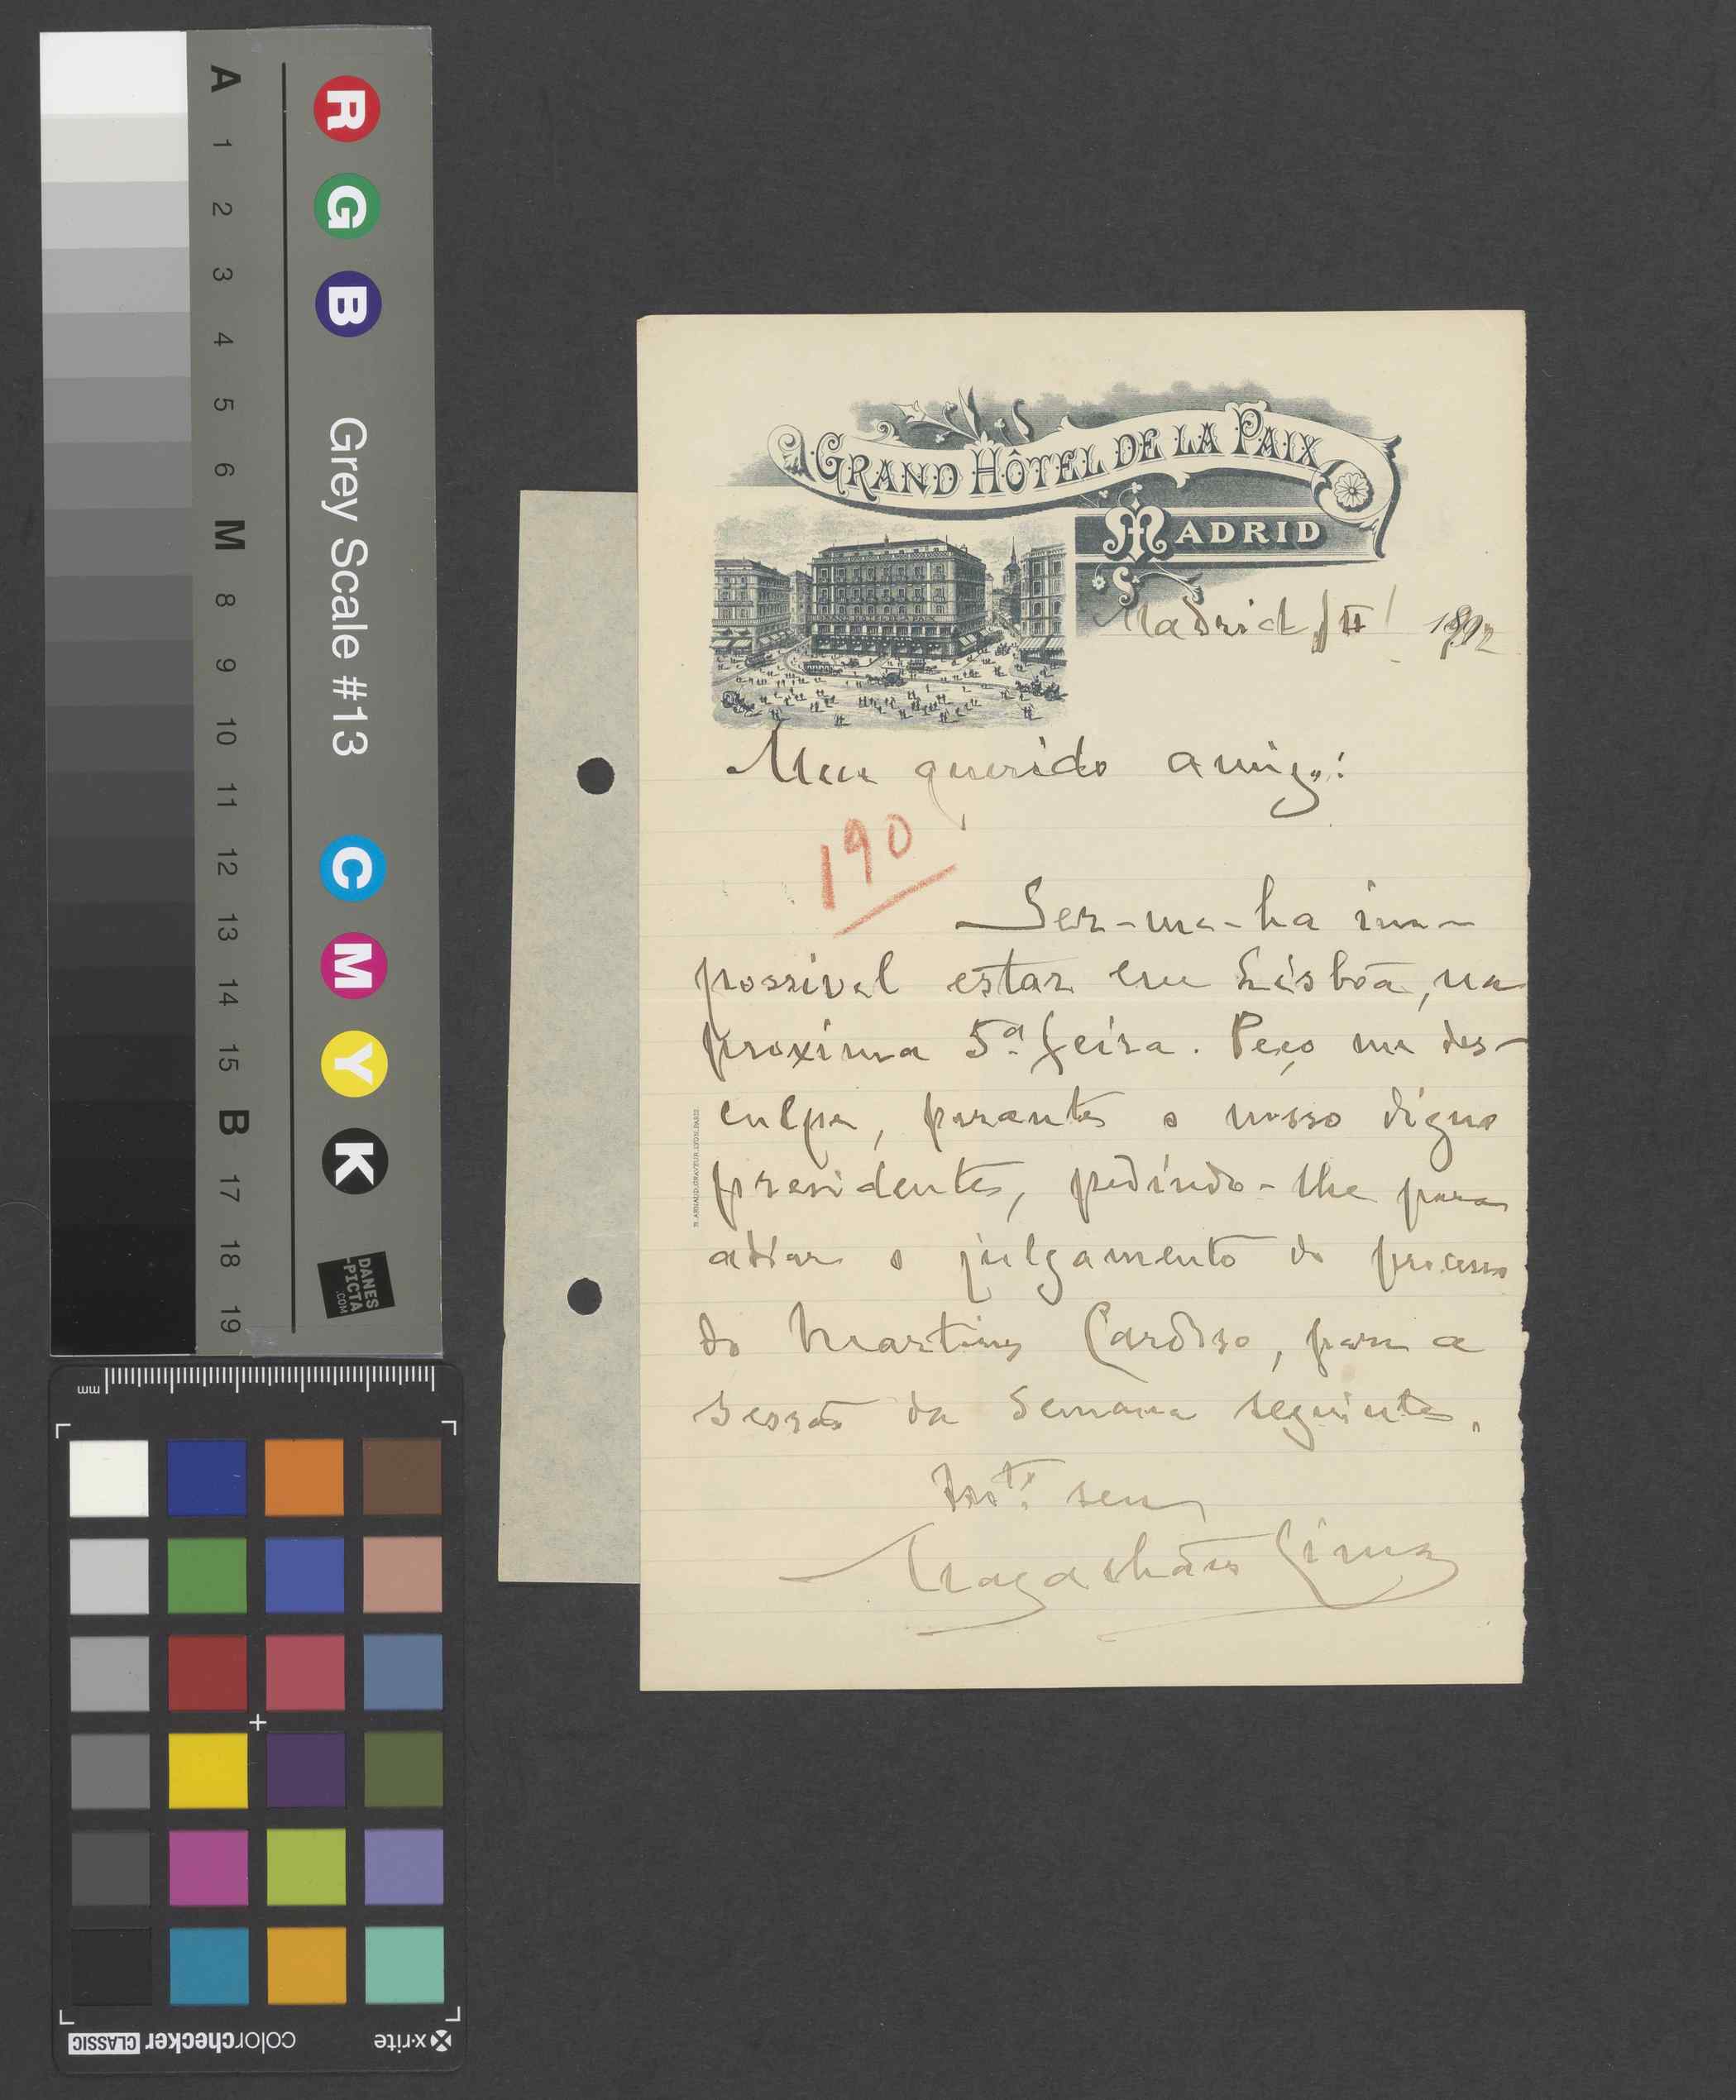 A
1
2
3
4
5
6
M
8
9
10
11
12
13
14
15
B
17
18
19
R G B
Grey Scale #13
C M Y K
DANES
-PICTA
.COM
mm
x-rite
colorchecker CLASSIC
GRAND HÔTEL DE LA PAIX
MADRID
GRAND HOTEL DE LA PAIX
Madrid
Meu querido amigo:
190
Ser-me-ha im-
possivel estar em Lisbôa, na
proxima 5ª feira. Peço me des-
culpe, perante o nosso digno
presidente, pedindo-lhe para
adiar o julgamento do processo
do Martins Cardoso, para a
sessão da semana seguinte.
seu
Magalhães Lima